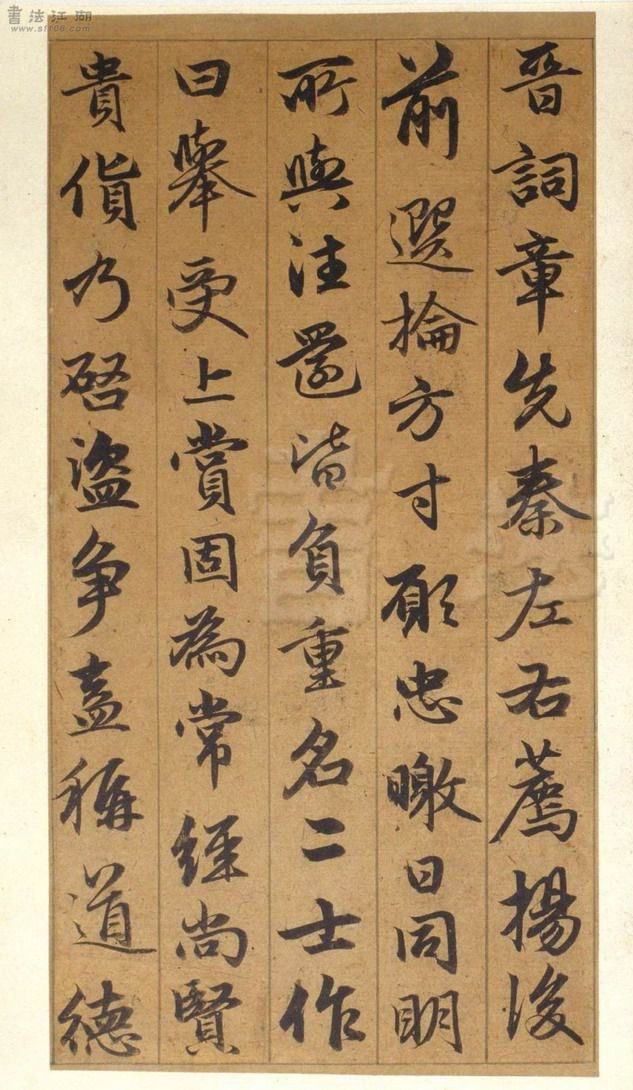 書法江湖
www.sf108.com
晉詞章先秦左右薦揚後
前選掄方寸願忠曒日同明
所與注罣皆負重名二士作
曰舉受上賞固為常經尚賢
貴貨乃啓盜争盍稱道德